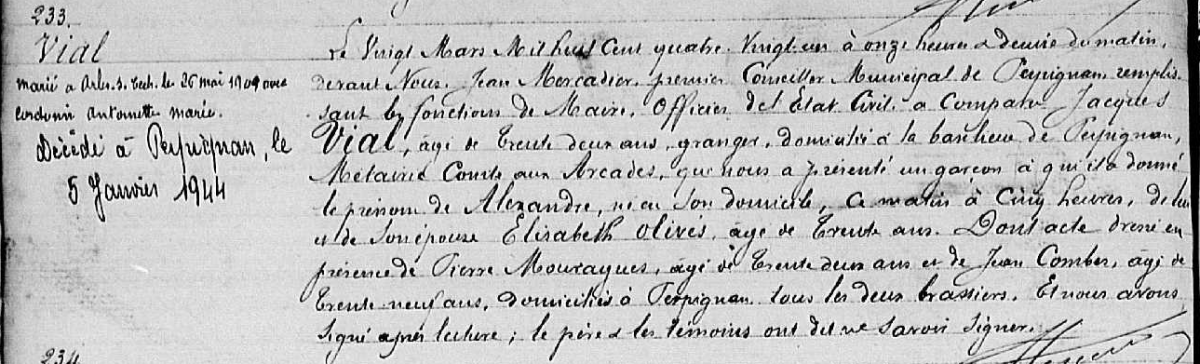 233.
Vial
marié à Arles-s-Tech le 26 mai 1909 avec
Antoinette marie.
Décédé à Perpignan, le
5 Janvier 1944
Le Vingt Mars Mil huit Cent quatre Vingt un à onze heures & demie du matin,
devant Nous, Jean Mercadier, premier Conseiller Municipal de Perpignan, remplis-
sant les fonctions de Maire, Officier de l'État Civil, a Comparu Jacques
Vial, âgé de trente deux ans, granger, domicilié à la banlieue de Perpignan,
Métairie Comte aux Arcades, qui nous a présenté un garçon à qui il a donné
le prénom de Alexandre, né en son domicile, Ce matin à Cinq heures, de lui
et de son épouse Elisabeth Olivés, âgée de trente ans. Dont acte dressé en
présence de Pierre Mouragues, âgé de trente deux ans et de Jean Combes, âgé de
trente neuf ans, domiciliés à Perpignan tous les deux brassiers. Et nous avons
signé après lecture ; le père & les témoins ont dit ne savoir signer.
234